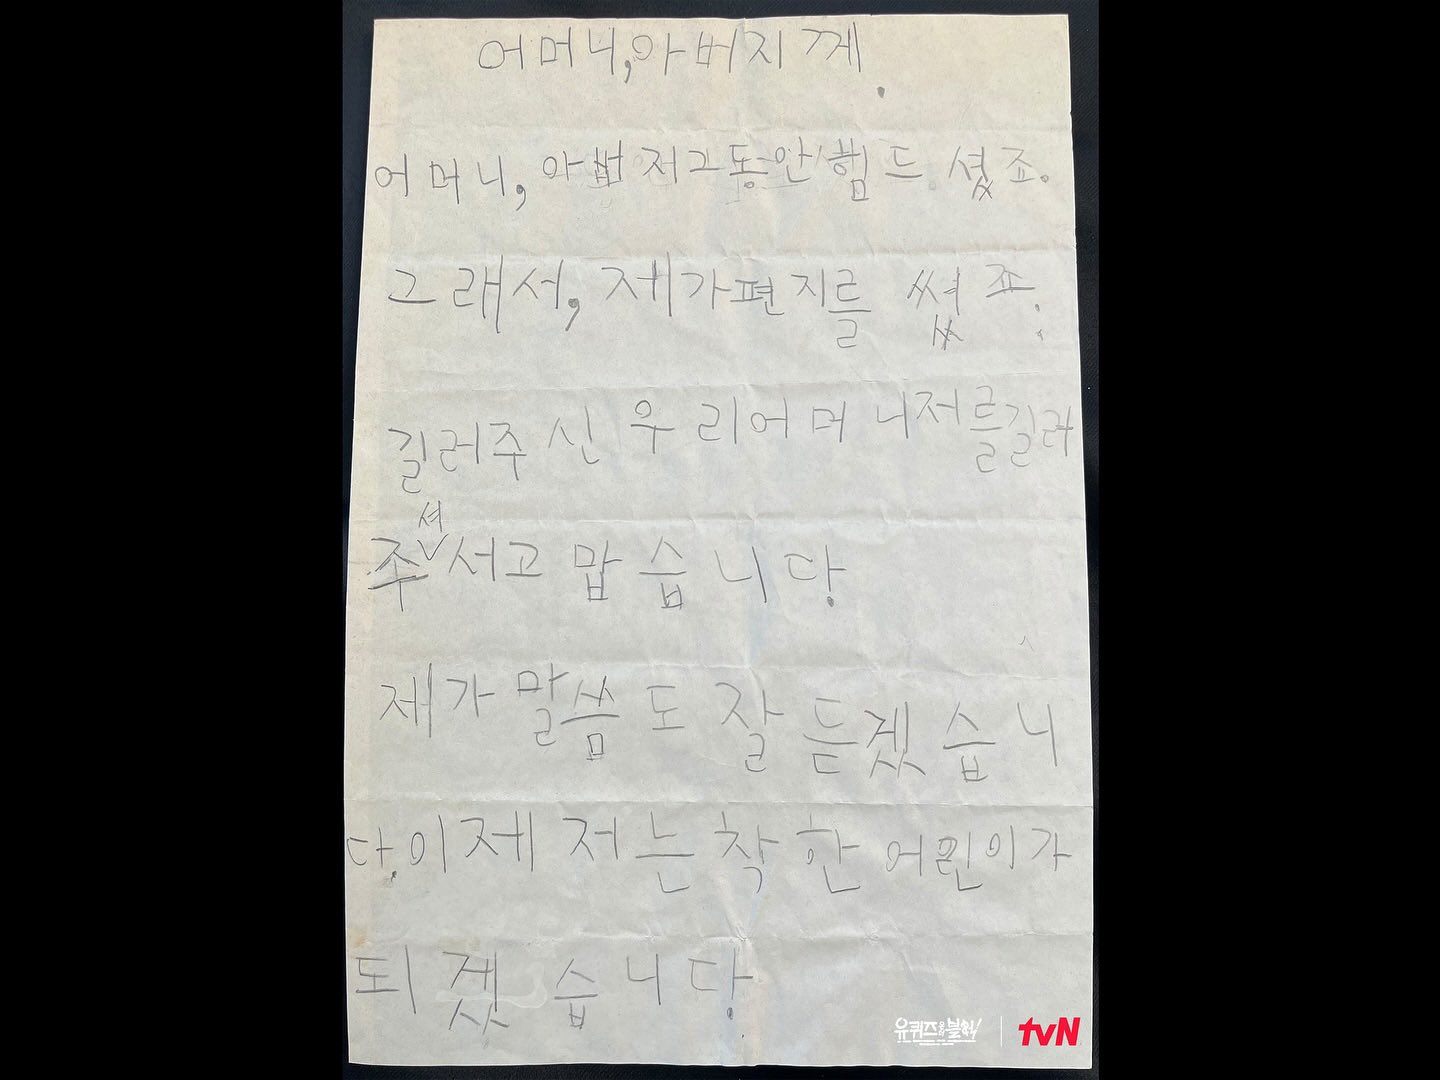 어머니,아버지께.
어머니, 아버저그동안 힘드셨죠.
그래서, 제가편지를 썼죠.
길러주신 우리어머니저를길러
주셔서고맙습니다.
제가 말씀도 잘 듣겠습니
다.이제 저는 착한 어린이가
되겠습니다.
유퀴즈온더블럭 tvN